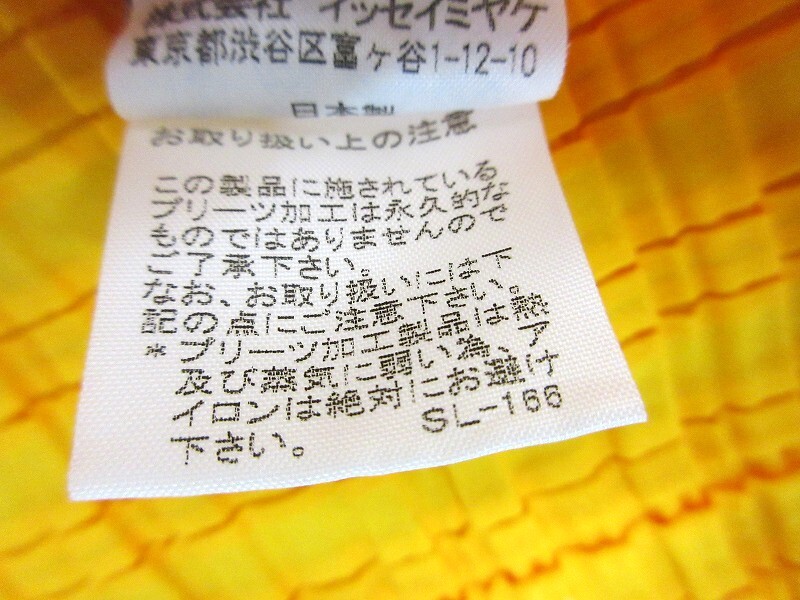 株式会社 イッセイミヤケ
東京都渋谷区富ヶ谷1-12-10
日本製
お取り扱い上の注意
この製品に施されている
プリーツ加工は永久的な
ものではありませんので
ご了承下さい。
なお、お取り扱いには下
記の点にご注意下さい。
*プリーツ加工製品は熱
及び蒸気に弱い為、ア
イロンは絶対にお避け
下さい。 SL-166